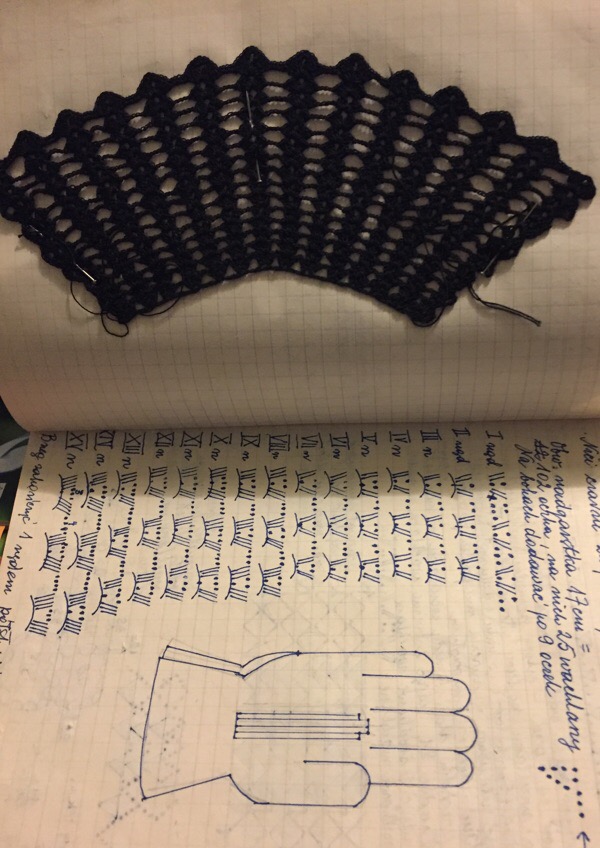 Nici
Obw. nadgarstka 17 cm =
102 oczka, na nich 25 wachlarzy
Na bokach dodawać po 9 oczek
I rząd
II rząd
III rz
IV rz
V rz
VI rz
VII rz
VIII rz
IX rz
X rz
XI rz
XII rz
XIII rz
XIV rz
XV rz
Brzeg 1 rzędem